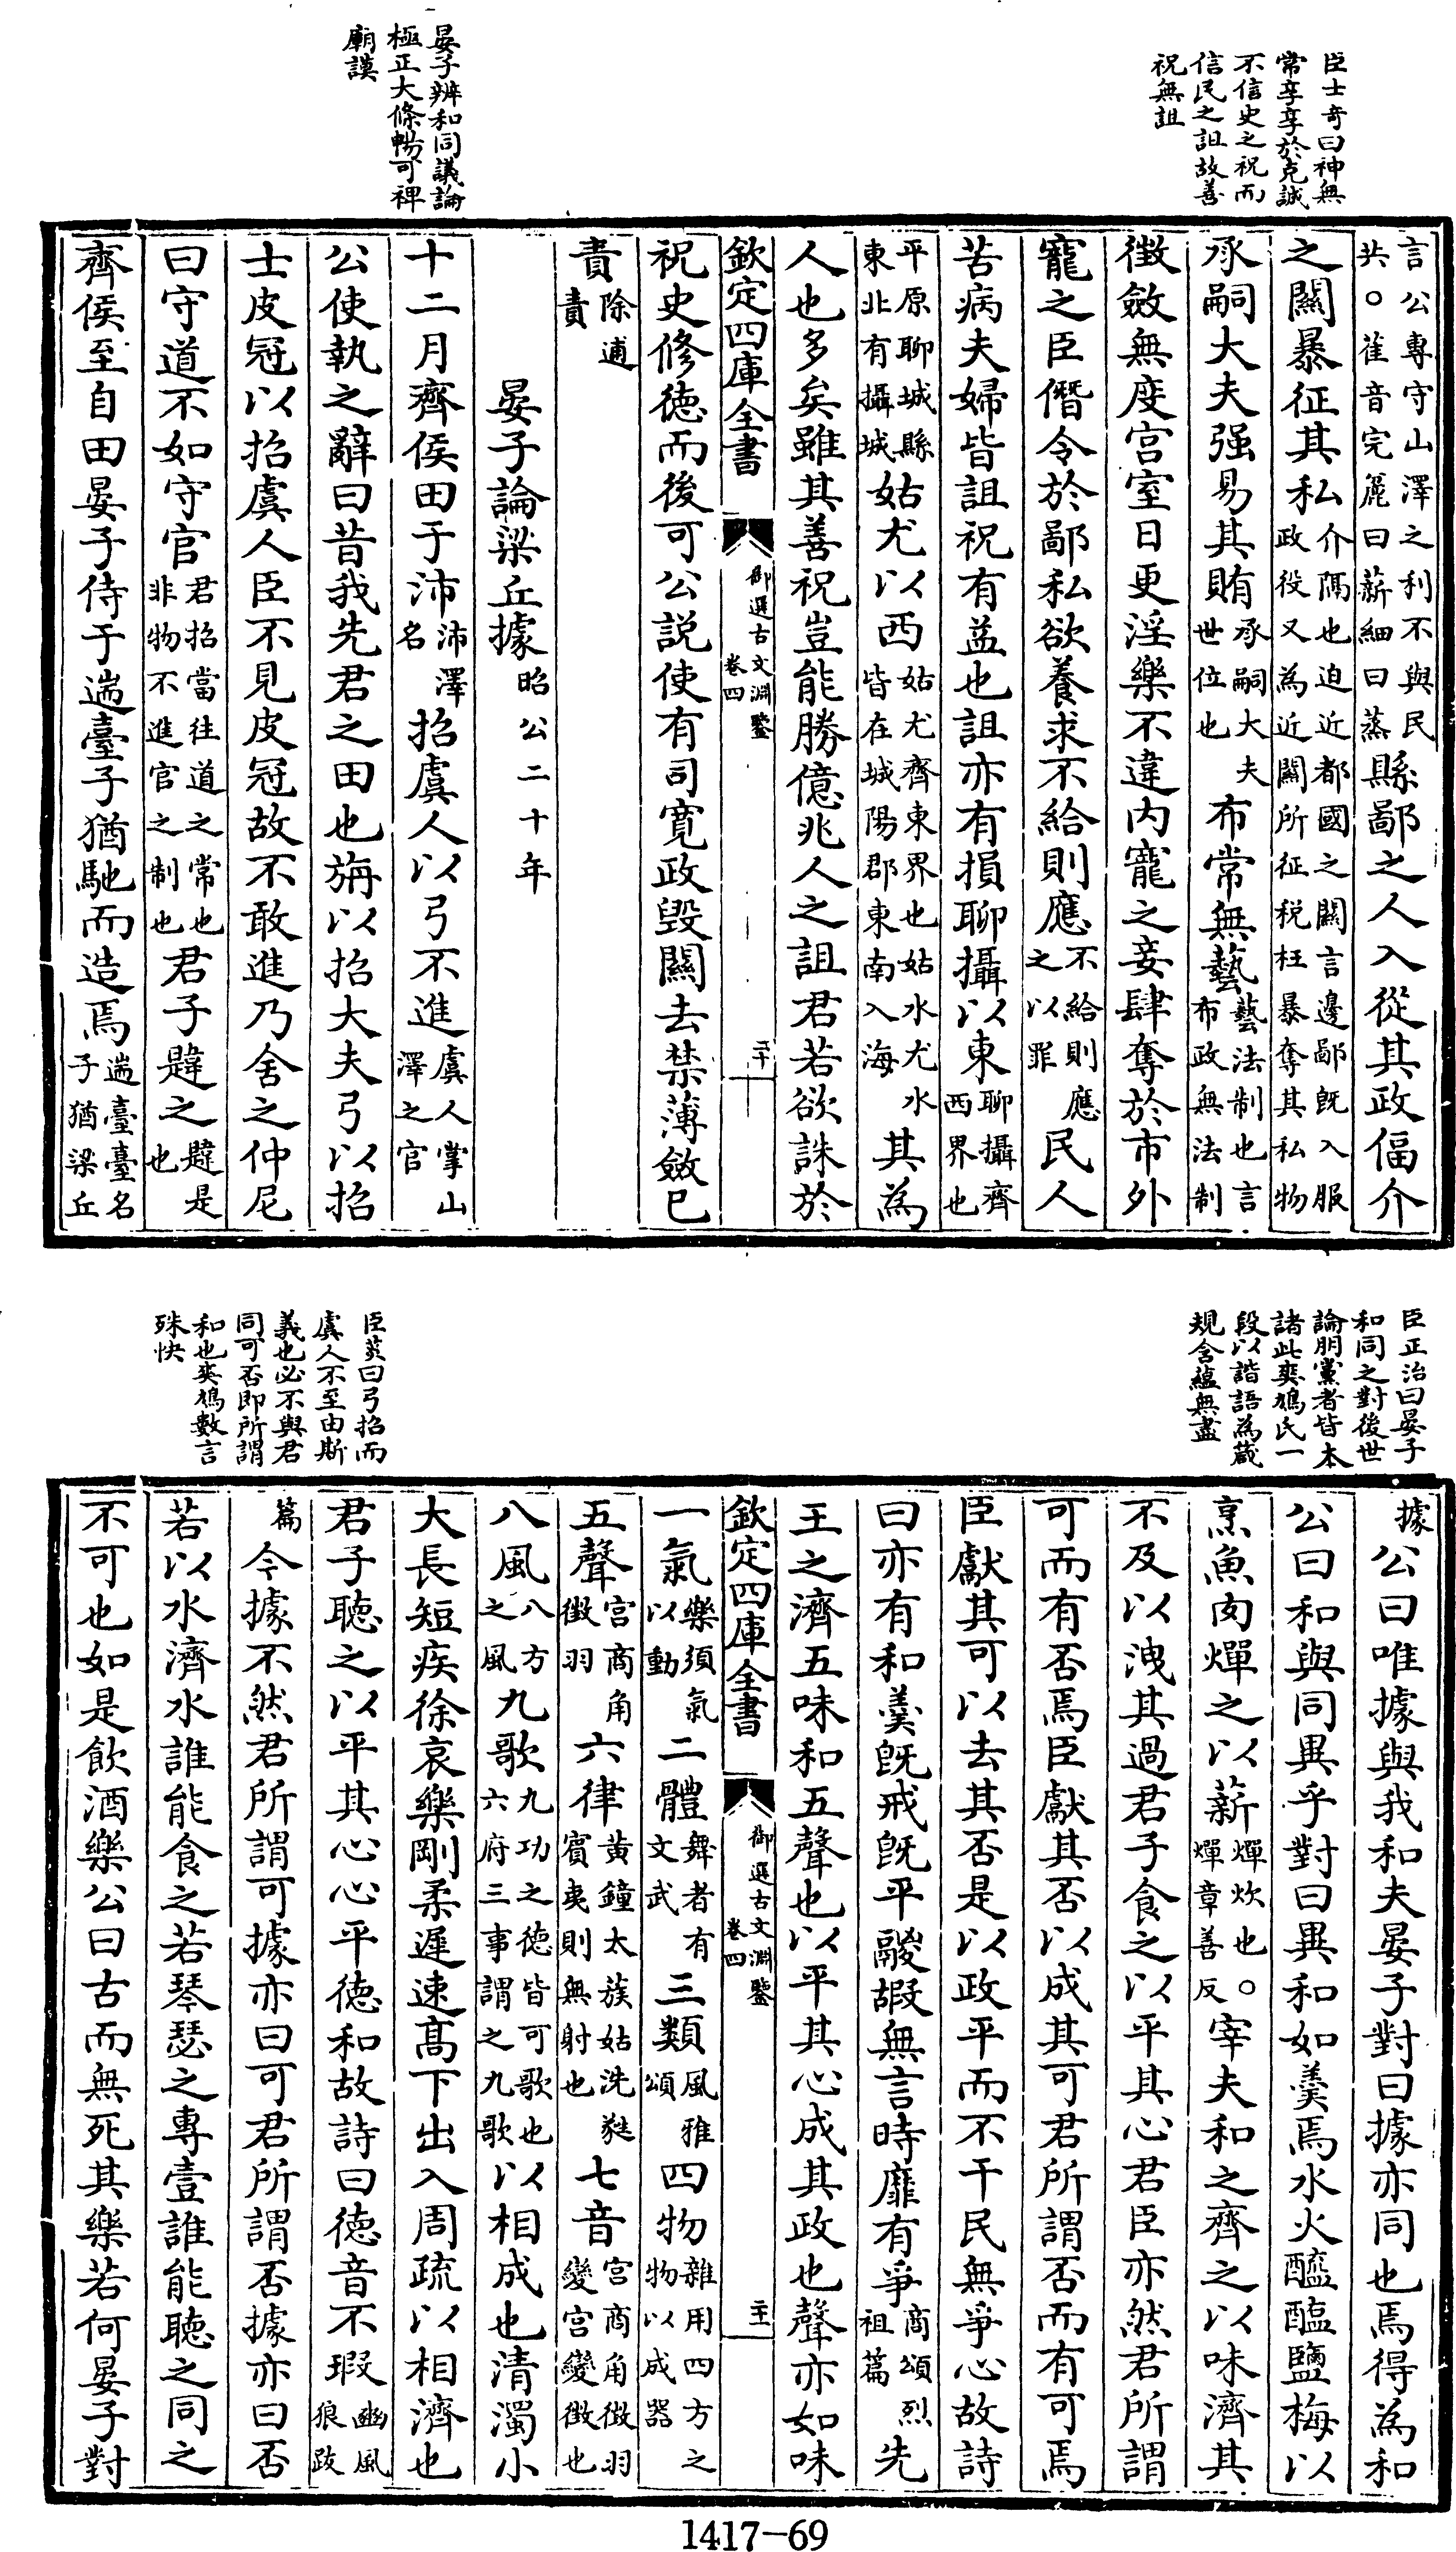 臣士奇曰神無
常享享於克誠
不信史之祝而
信民之詛故善
祝無詛
晏子辨和同議論
極正大條暢可裨
廟謨
言公專守山澤之利不與民
共○萑音完麓曰薪細曰蒸縣鄙之人入從其政偪介
之關暴征其私介隔也迫近都國之關言邊鄙既入服
政役又為近關所征税枉暴奪其私物
承嗣大夫强易其賄承嗣大夫
世位也布常無藝藝法制也言
布政無法制
徴斂無度宫室日更淫樂不違内寵之妾肆奪於市外
寵之臣僭令於鄙私欲養求不給則應不給則應
之以罪民人
苦病夫婦皆詛祝有益也詛亦有損聊攝以東聊攝齊
西界也
平原聊城縣
東北有攝城姑尤以西姑尤齊東界也姑水尤水
皆在城陽郡東南入海其為
人也多矣雖其善祝豈能勝億兆人之詛君若欲誅於
欽定四庫全書
御選古文淵鑒
卷四
二十
祝史修德而後可公説使有司寛政毁關去禁薄斂已
責除逋
責
晏子論梁丘據昭公二十年
十二月齊侯田于沛沛澤
名招虞人以弓不進虞人掌山
澤之官
公使執之辭曰昔我先君之田也旃以招大夫弓以招
士皮冠以招虞人臣不見皮冠故不敢進乃舍之仲尼
曰守道不如守官君招當往道之常也
非物不進官之制也君子韙之韙是
也
齊侯至自田晏子侍于遄臺子猶馳而造焉遄臺臺名
子猶梁丘
臣正治曰晏子
和同之對後世
論朋黨者皆本
諸此爽鳩氏一
段以諧語為箴
規含蘊無盡
臣英曰弓招而
虞人不至由斯
義也必不與君
同可否即所謂
和也爽鳩數言
殊快
據
公曰唯據與我和夫晏子對曰據亦同也焉得為和
公曰和與同異乎對曰異和如羹焉水火醯醢鹽梅以
烹魚肉燀之以薪燀炊也○
燀章善反宰夫和之齊之以味濟其
不及以洩其過君子食之以平其心君臣亦然君所謂
可而有否焉臣獻其否以成其可君所謂否而有可焉
臣獻其可以去其否是以政平而不干民無爭心故詩
曰亦有和羹既戒既平鬷嘏無言時靡有爭商頌烈
祖篇先
王之濟五味和五聲也以平其心成其政也聲亦如味
欽定四庫全書
御選古文淵鑒
卷四
二十一
一氣樂須氣
以動二體舞者有
文武三類風雅
頌四物雜用四方之
物以成器
五聲宫商角
徴羽六律黄鐘太蔟姑洗蕤
賓夷則無射也七音宫商角徴羽
變宫變徴也
八風八方
之風九歌九功之德皆可歌也
六府三事謂之九歌以相成也清濁小
大長短疾徐哀樂剛柔遲速髙下出入周疏以相濟也
君子聴之以平其心心平德和故詩曰德音不瑕豳風
狼跋
篇今據不然君所謂可據亦曰可君所謂否據亦曰否
若以水濟水誰能食之若琴瑟之專壹誰能聴之同之
不可也如是飲酒樂公曰古而無死其樂若何晏子對
1417-69